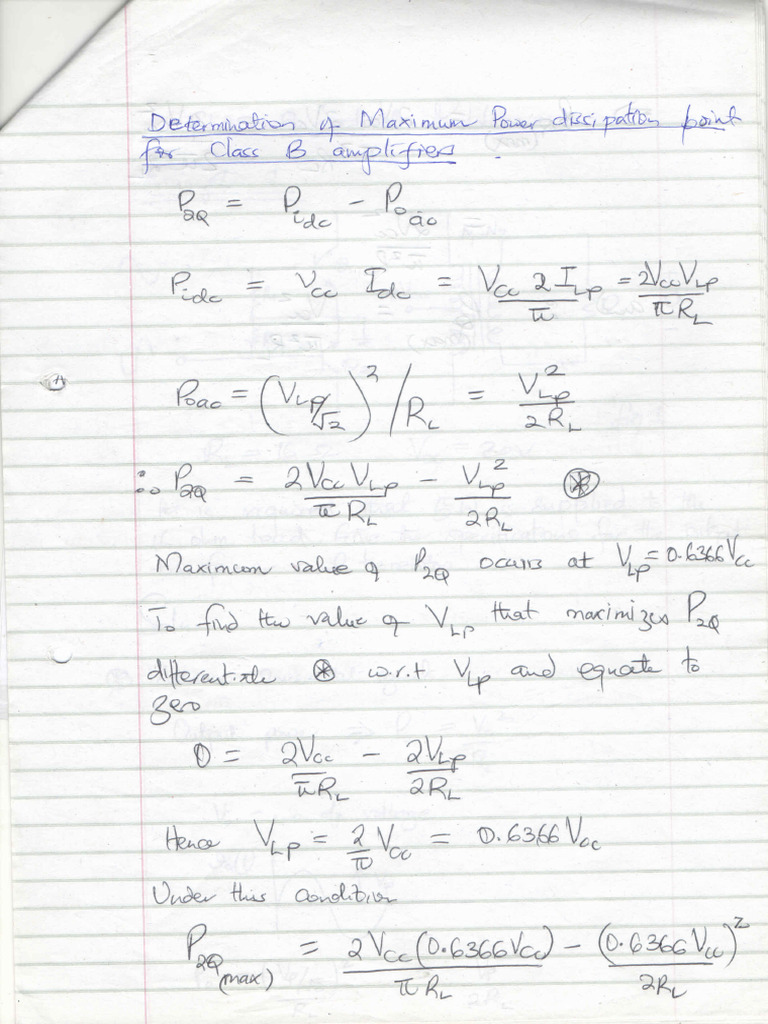 Determination of Maximum Power dissipation point
for Class B amplifiers.
P₂Q = Pidc − Poac
Pidc = Vcc Idc = Vcc 2 ILp / π = 2VccVLp / π RL
Poac = (VLp/√2)² / RL = VLp² / 2 RL
∴ P₂Q = 2Vcc VLp / π RL − VLp² / 2RL ⊛
Maximum value of P₂Q occurs at VLp = 0.6366Vcc
To find the value of VLp that maximizes P₂Q
differentiate ⊛ w.r.t VLp and equate to
zero
0 = 2Vcc / πRL − 2VLp / 2RL
Hence VLp = 2/π Vcc = 0.6366Vcc
Under this condition
P₂Q(max) = 2Vcc(0.6366Vcc) / π RL − (0.6366Vcc)² / 2RL